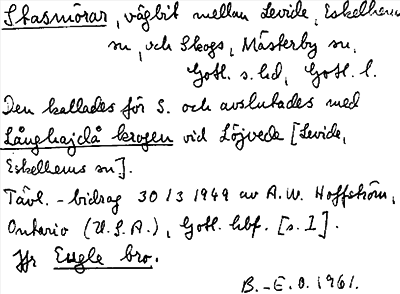 Stasmörar, vägbit mellan Levide, Eskelhems
sn, och Skogs, Mästerby sn,
Gotl. s. hd, Gotl. l.
Den kallades för S. och avslutades med
Långhajdå krogen vid Löjvede [Levide,
Eskelhems sn].
Tävl.-bidrag 30/3 1949 av A.W. Hoffström,
Ontario (U.S.A.), Gotl. hbf. [s. 1].
Jfr Eugle bro.
B.-E.O. 1961.